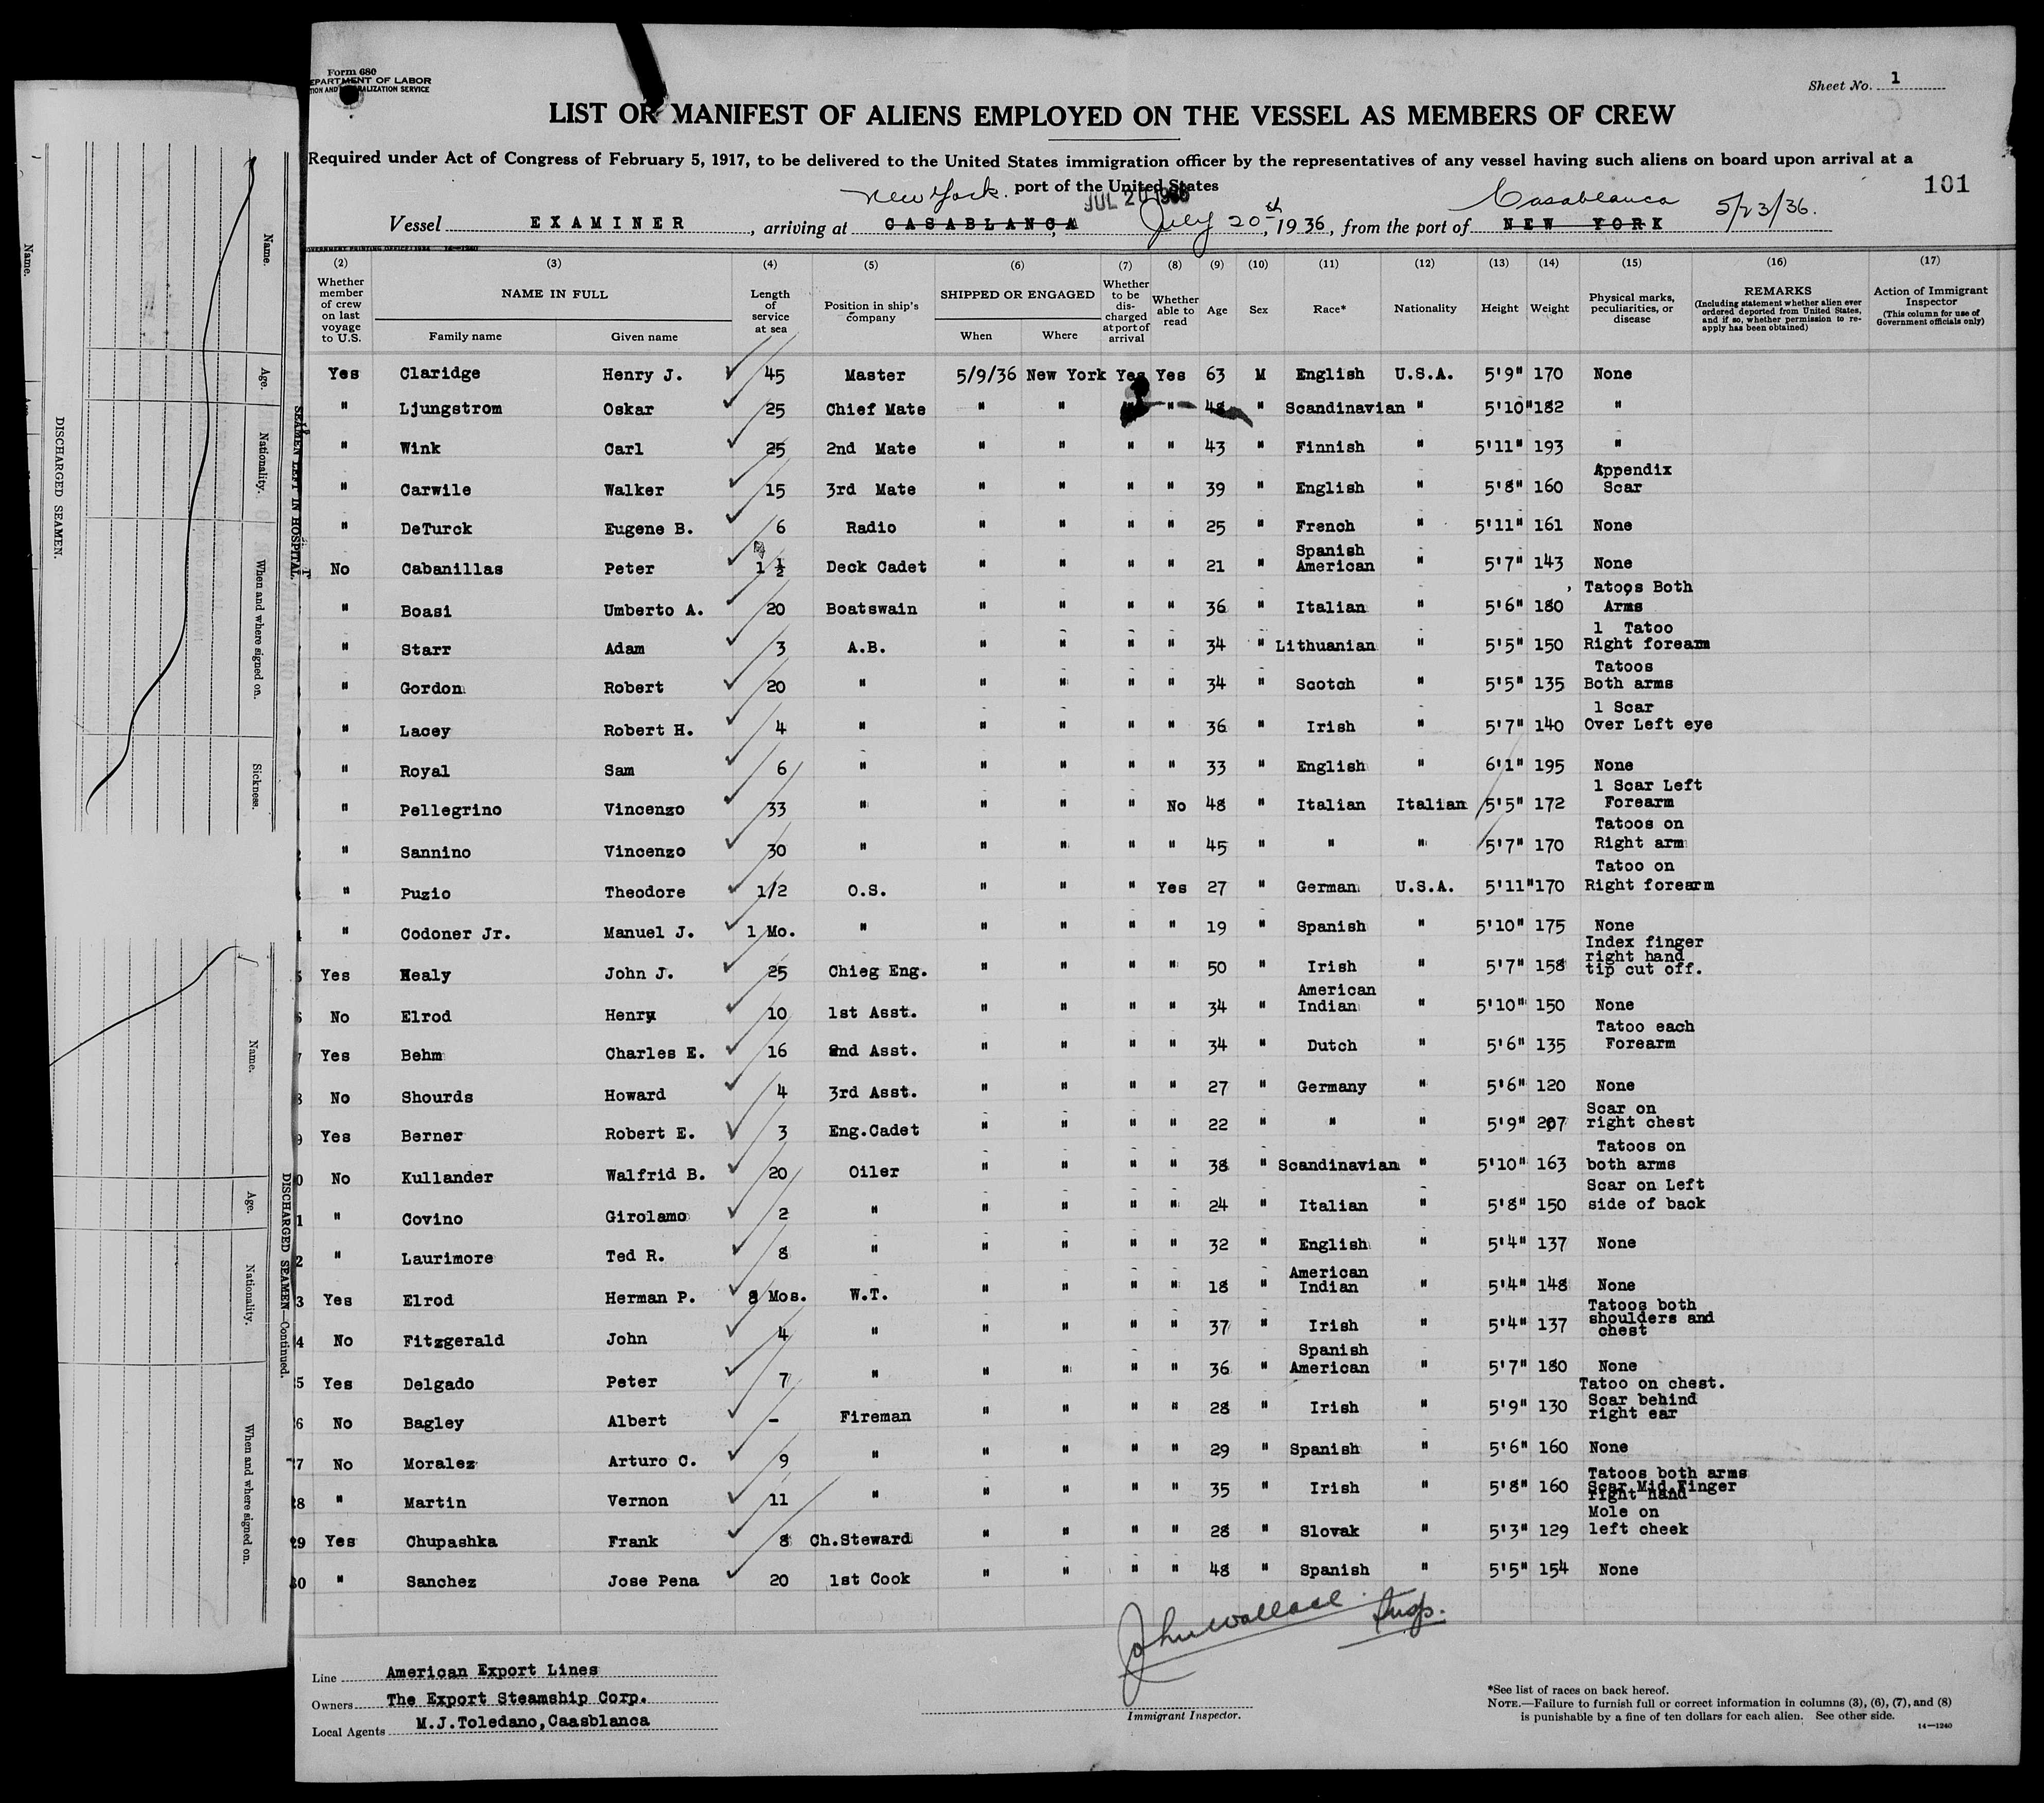 Form 680
EPARTMENT OF LABOR
TION AND RALIZATION SERVICE
Sheet No. 1
LIST OR MANIFEST OF ALIENS EMPLOYED ON THE VESSEL AS MEMBERS OF CREW
Required under Act of Congress of February 5, 1917, to be delivered to the United States immigration officer by the representatives of any vessel having such aliens on board upon arrival at a
port of the United States
101
New York. JUL 20 1936 Casablanca 5/23/36.
Vessel EXAMINER, arriving at CASABLANCA, July 20th, 1936, from the port of NEW YORK
(2) (3) (4) (5) (6) (7) (8) (9) (10) (11) (12) (13) (14) (15) (16) (17)
Whether member of crew on last voyage to U.S. NAME IN FULL Family name Given name Length of service at sea Position in ship's company SHIPPED OR ENGAGED When Where Whether to be discharged at port of arrival Whether able to read Age Sex Race* Nationality Height Weight Physical marks, peculiarities, or disease REMARKS (Including statement whether alien ever ordered deported from United States, and if so, whether permission to reapply has been obtained) Action of Immigrant Inspector (This column for use of Government officials only)
Yes Claridge Henry J. 45 Master 5/9/36 New York Yes Yes 63 M English U.S.A. 5'9" 170 None
" Ljungstrom Oskar 25 Chief Mate " " " " 48 " Scandinavian " 5'10" 182 "
" Wink Carl 25 2nd Mate " " " " 43 " Finnish " 5'11" 193 "
" Carwile Walker 15 3rd Mate " " " " 39 " English " 5'8" 160 Appendix Scar
" DeTurck Eugene B. 6 Radio " " " " 25 " French " 5'11" 161 None
No Cabanillas Peter 1 ½ Deck Cadet " " " " 21 " Spanish American " 5'7" 143 None
" Boasi Umberto A. 20 Boatswain " " " " 36 " Italian " 5'6" 180 Tatoos Both Arms
" Starr Adam 3 A.B. " " " " 34 " Lithuanian " 5'5" 150 1 Tatoo Right forearm
" Gordon Robert 20 " " " " " 34 " Scotch " 5'5" 135 Tatoos Both arms
" Lacey Robert H. 4 " " " " " 36 " Irish " 5'7" 140 1 Scar Over Left eye
" Royal Sam 6 " " " " " 33 " English " 6'1" 195 None
" Pellegrino Vincenzo 33 " " " " No 48 " Italian Italian 5'5" 172 1 Scar Left Forearm
" Sannino Vincenzo 30 " " " " " 45 " " " 5'7" 170 Tatoos on Right arm
" Puzio Theodore 1/2 O.S. " " " Yes 27 " German U.S.A. 5'11" 170 Tatoo on Right forearm
" Codoner Jr. Manuel J. 1 Mo. " " " " " 19 " Spanish " 5'10" 175 None
Yes Healy John J. 25 Chieg Eng. " " " " 50 " Irish " 5'7" 158 Index finger right hand tip cut off.
No Elrod Henry 10 1st Asst. " " " " 34 " American Indian " 5'10" 150 None
Yes Behm Charles E. 16 2nd Asst. " " " " 34 " Dutch " 5'6" 135 Tatoo each Forearm
No Shourds Howard 4 3rd Asst. " " " " 27 " Germany " 5'6" 120 None
Yes Berner Robert E. 3 Eng.Cadet " " " " 22 " " " 5'9" 207 Scar on right chest
No Kullander Walfrid B. 20 Oiler " " " " 38 " Scandinavian " 5'10" 163 Tatoos on both arms
" Covino Girolamo 2 " " " " " 24 " Italian " 5'8" 150 Scar on Left side of back
" Laurimore Ted R. 8 " " " " " 32 " English " 5'4" 137 None
Yes Elrod Herman P. 8 Mos. W.T. " " " " 18 " American Indian " 5'4" 148 None
No Fitzgerald John 4 " " " " " 37 " Irish " 5'4" 137 Tatoos both shoulders and chest
Yes Delgado Peter 7 " " " " " 36 " Spanish American " 5'7" 180 None
No Bagley Albert - Fireman " " " " 28 " Irish " 5'9" 130 Tatoo on chest. Scar behind right ear
No Moralez Arturo C. 9 " " " " " 29 " Spanish " 5'6" 160 None
" Martin Vernon 11 " " " " " 35 " Irish " 5'8" 160 Tatoos both arms Scar Mid.Finger right hand
29 Yes Chupashka Frank 8 Ch.Steward " " " " 28 " Slovak " 5'3" 129 Mole on left cheek
30 " Sanchez Jose Pena 20 1st Cook " " " " 48 " Spanish " 5'5" 154 None
John Wallace Insp.
Immigrant Inspector.
Line American Export Lines
Owners The Export Steamship Corp.
Local Agents M.J.Toledano,Caasblanca
*See list of races on back hereof.
NOTE.—Failure to furnish full or correct information in columns (3), (6), (7), and (8)
is punishable by a fine of ten dollars for each alien. See other side.
14—1240
Name.
DISCHARGED SEAMEN.
Name.
Age.
Nationality.
When and where signed on.
Sickness.
SEAMEN LEFT IN HOSPITAL
Name.
Age.
Nationality.
When and where signed on.
DISCHARGED SEAMEN—Continued.